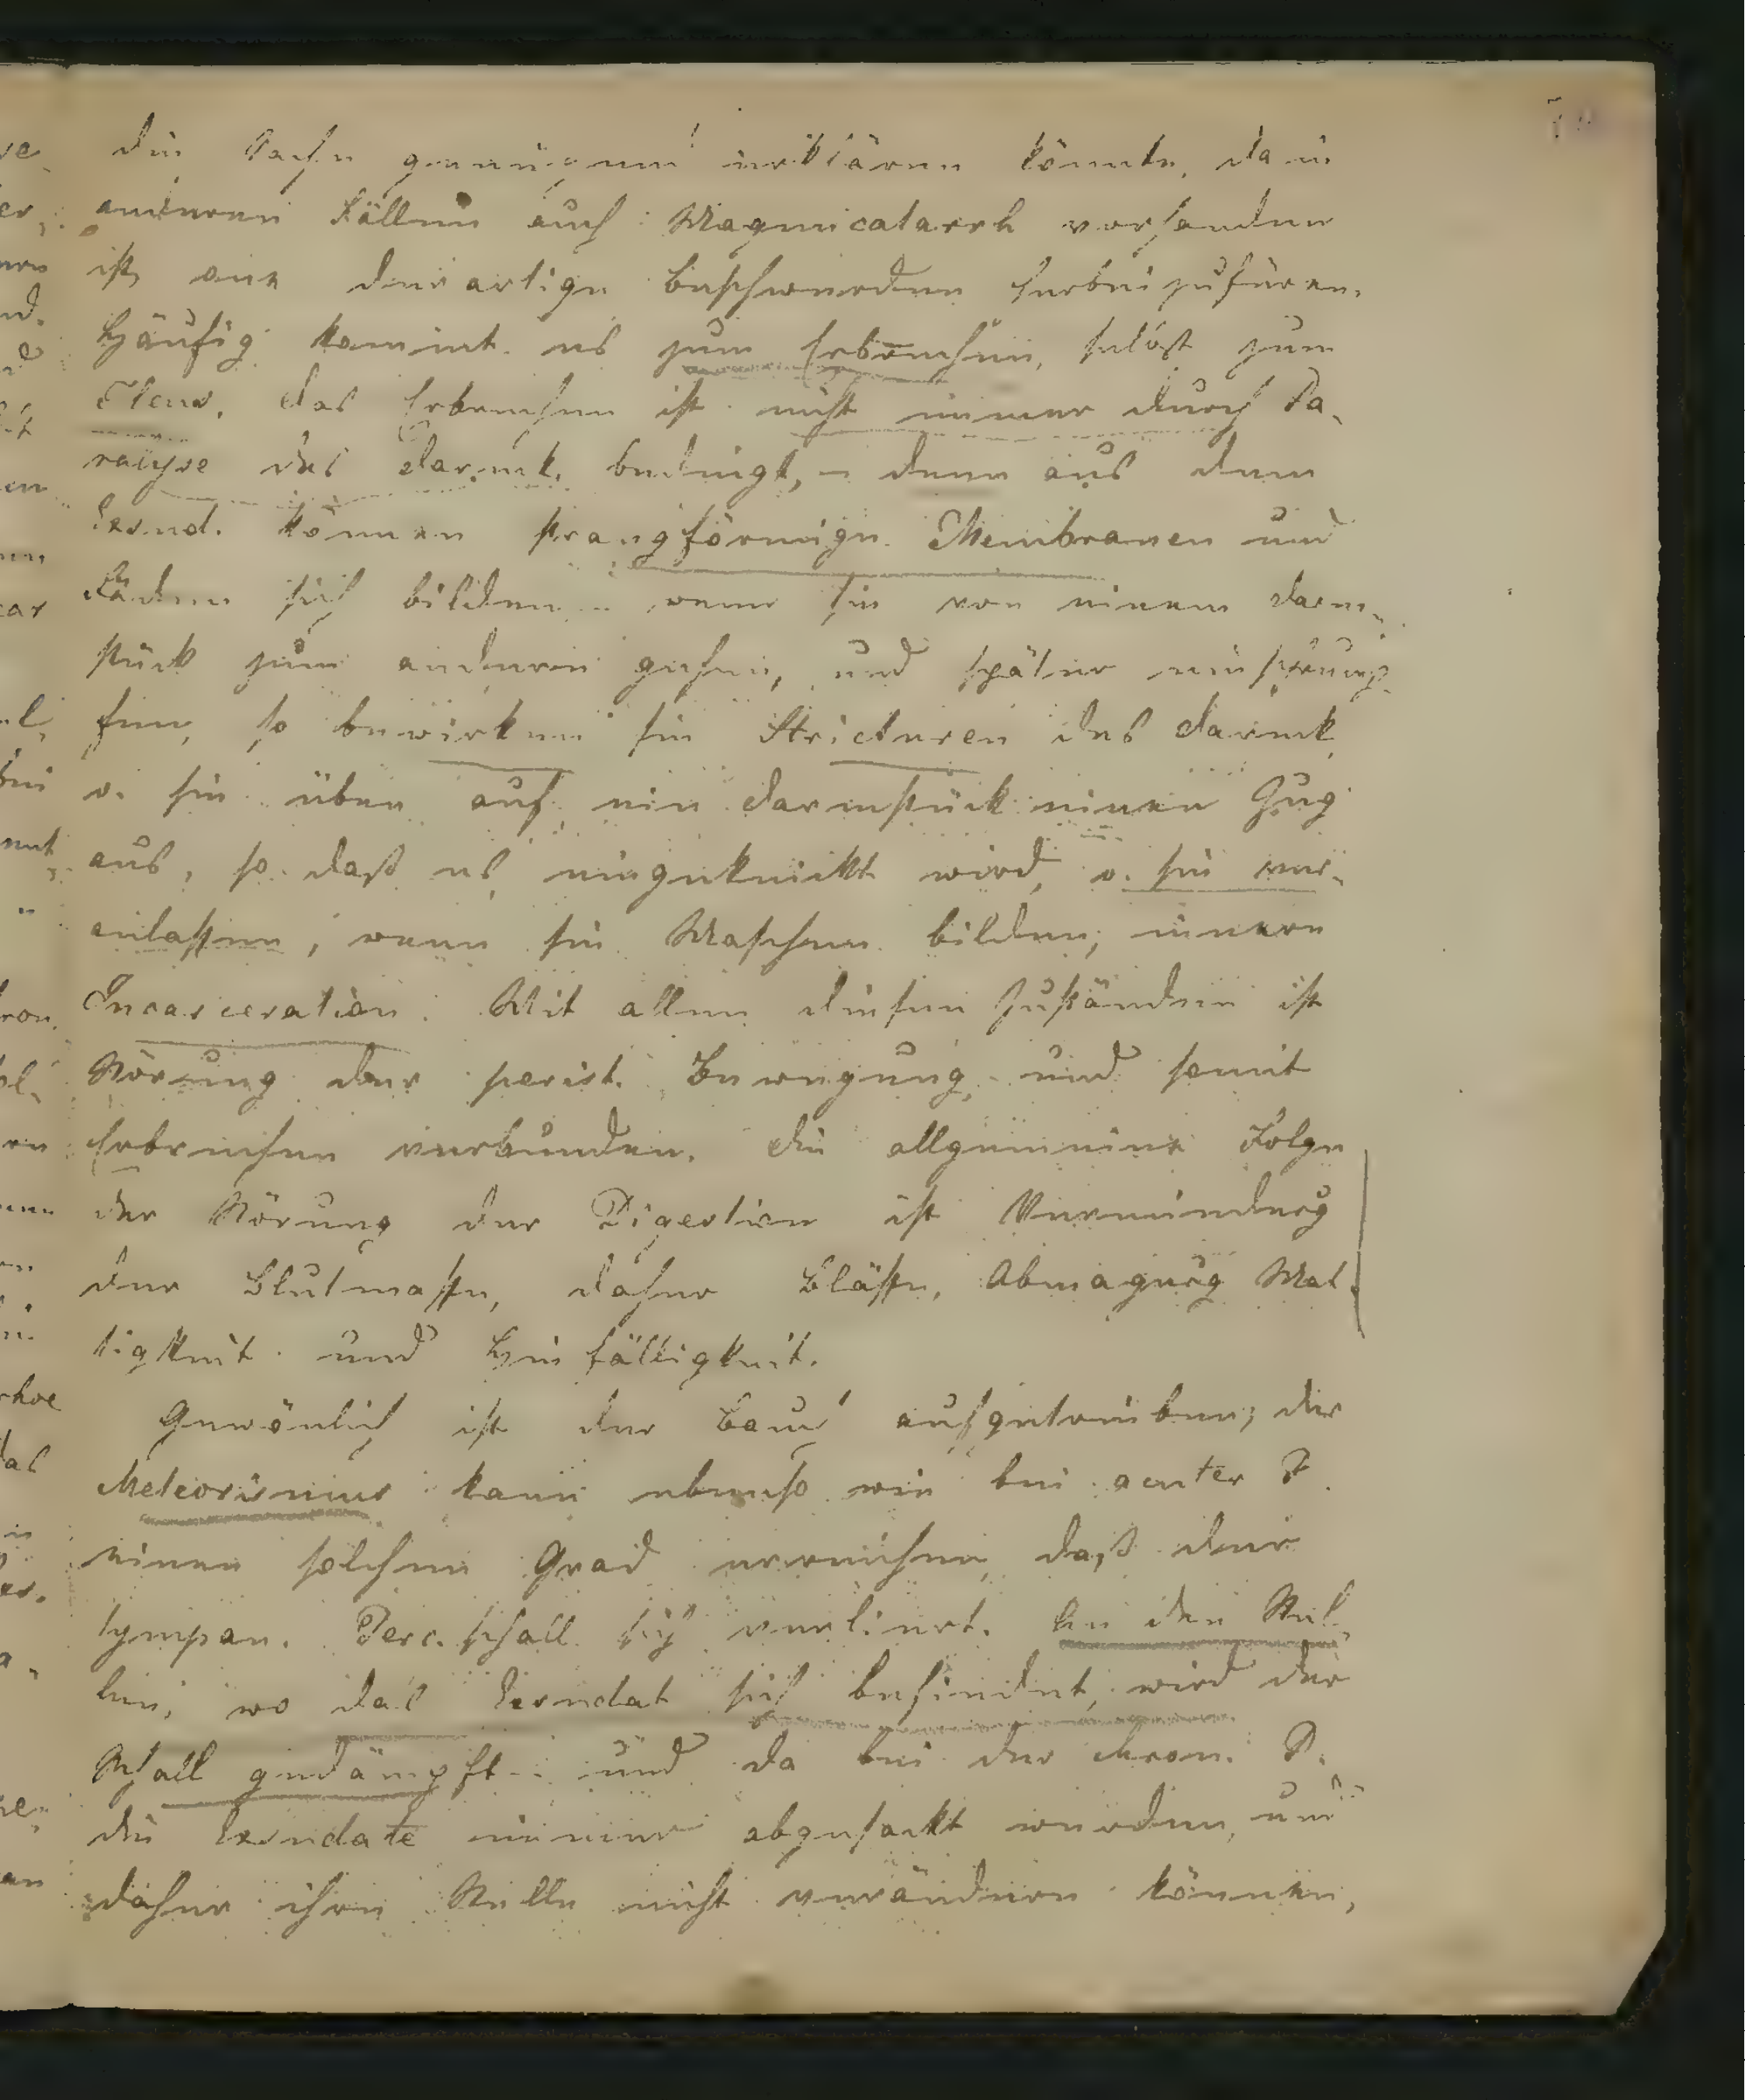 die Sache genaugend erklären könnte, da in
anderen Fällen auch Magencatarrh vorhanden
ist, one derartige Beschwerden herbeizufüren.
Häufig kommt es zum Erbrechen, selbst zum
Ileus. das Erbrechen ist nicht immer durch Pa-
ralyse des darmk. bedingt, – denn aus dem
Exsud. können strangförmige Membranen und
Fäden sich bilden – wenn sie von einem darm-
stück zum anderen gehen, und später einschrump-
fen, so bewirken sie Stricturen des darmk
o. sie üben auf ein darmstück einen Zug
aus, so daß es eingeknickt wird, o. sie ver-
anlassen, wenn sie Maschen bilden, innere
Incarceration. Mit allen diesen Zuständen ist
Störung der perist. Bewegung und somit
Erbrechen verbunden. die allgemeine Folge
der Störung der Digestion ist Verminderug
der Blutmasse, daher Blässe, Abmagerug Mat-
tigkeit und Hinfälligkeit.
Gewönlich ist der Bauch aufgetrieben; der
Meteorismus kann ebenso wie bei acuter P.
einen solchen Grad erreichen, daß der
tympan. Perc. schall sich verliert. An den Stel-
len, wo das Exsudat sich befindet, wird der
Schall gedämpft – und da bei der chron. P.
die Exsudate immer abgesackt werden, und
daher ihre Stelle nicht verändern können,